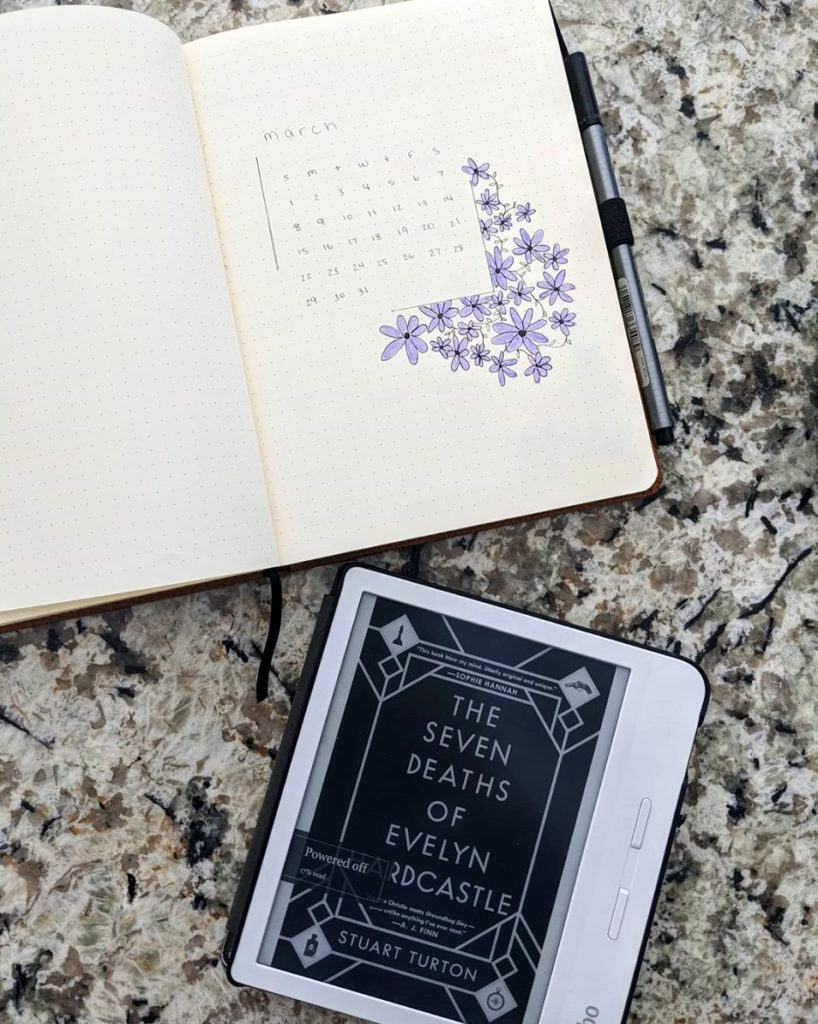 march
S M T W T F S
1 2 3 4 5 6 7
8 9 10 11 12 13 14
15 16 17 18 19 20 21
22 23 24 25 26 27 28
29 30 31
"This book blew my mind. Utterly original and unique."
—SOPHIE HANNAH
THE
SEVEN
DEATHS
OF
EVELYN
RDCASTLE
Powered off
17% read
Christie meets Groundhog Day—
unlike anything I've ever read."
—A. J. FINN
STUART TURTON